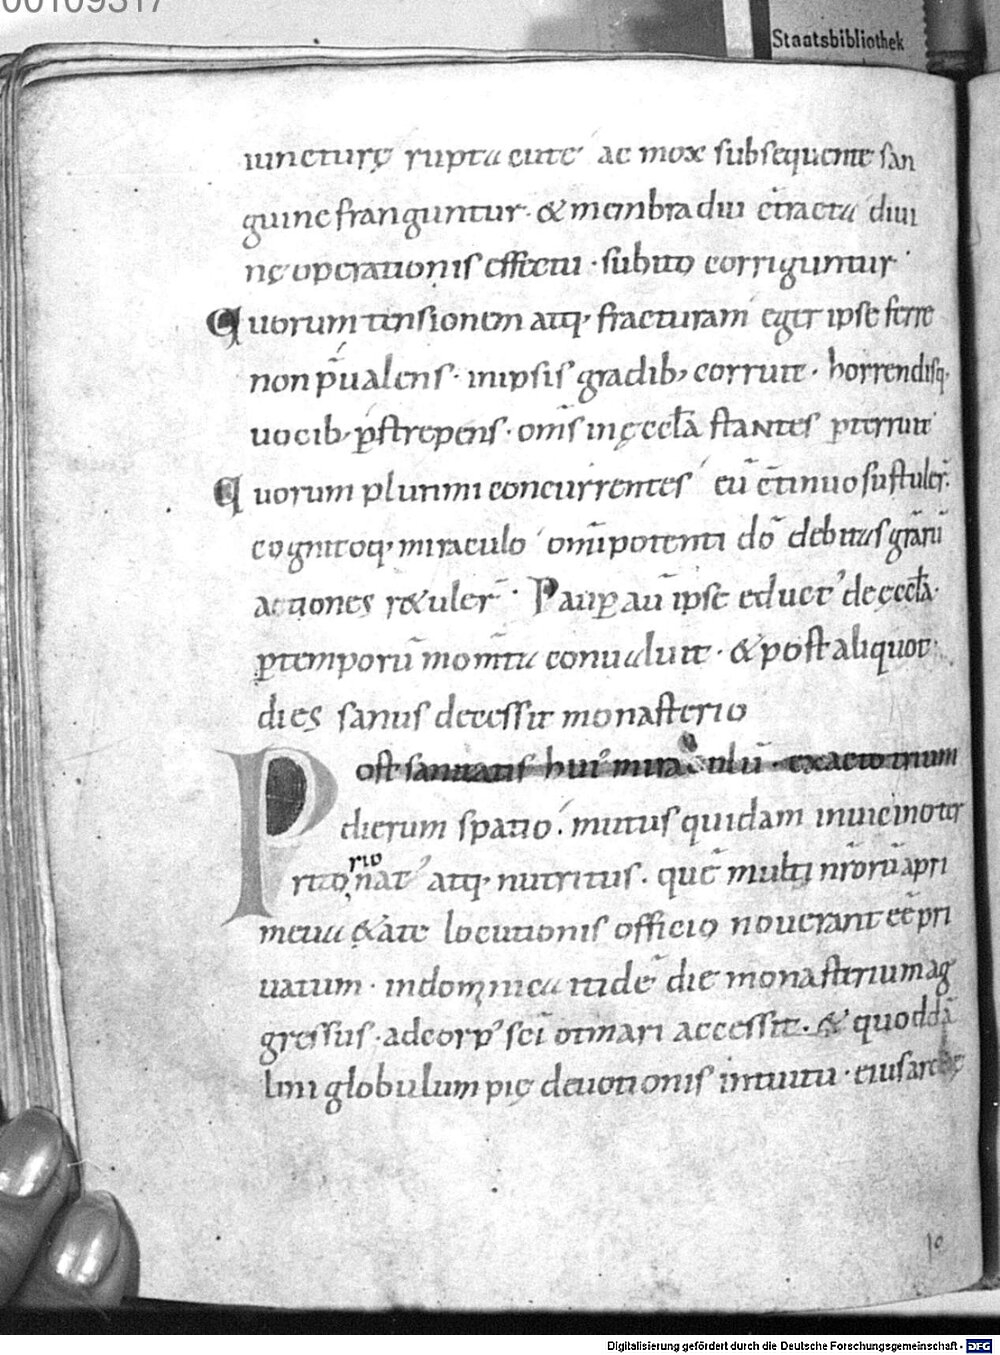 00109317
Staatsbibliothek
iuncturę rupta cute ac mox subsequente san
guine franguntur · & membra diu c̄tracta diui
nę operationis effectu · subito corriguntur ·
Quorum tensionem atq; fracturam eger ipse ferre
non p̄ualens · in ipsis gradib; corruit · horrendisq;
uocib; ꝑstrepens · om̄s in ęccl̄a stantes ꝑterruit
Quorum plurimi concurrentes eū c̄tinuo sustuler̄.
cognitoq; miraculo omīpotenti dō debitas gr̄arū
actiones r&uler̄ · Pauꝑ aū ipse educt' de ęccl̄a ·
ꝑ temporū mom̄ta conualuit · & post aliquot
dies sanus decessit monasterio
Post sanitatis hui' miraculū · exacto trium
dierum spatio · mutus quidam in uicino ter
ritorio nat' atq; nutritus · quē multi nr̄orū a pri
meua &ate locutionis officio nouerant eē pri
uatum · in dominica itidē die monasterium ag
gressus · ad corp' sc̄i otmari accessit · & quoddā
lini globulum pię deuotionis intuitu · eius
10
Digitalisierung gefördert durch die Deutsche Forschungsgemeinschaft - DFG